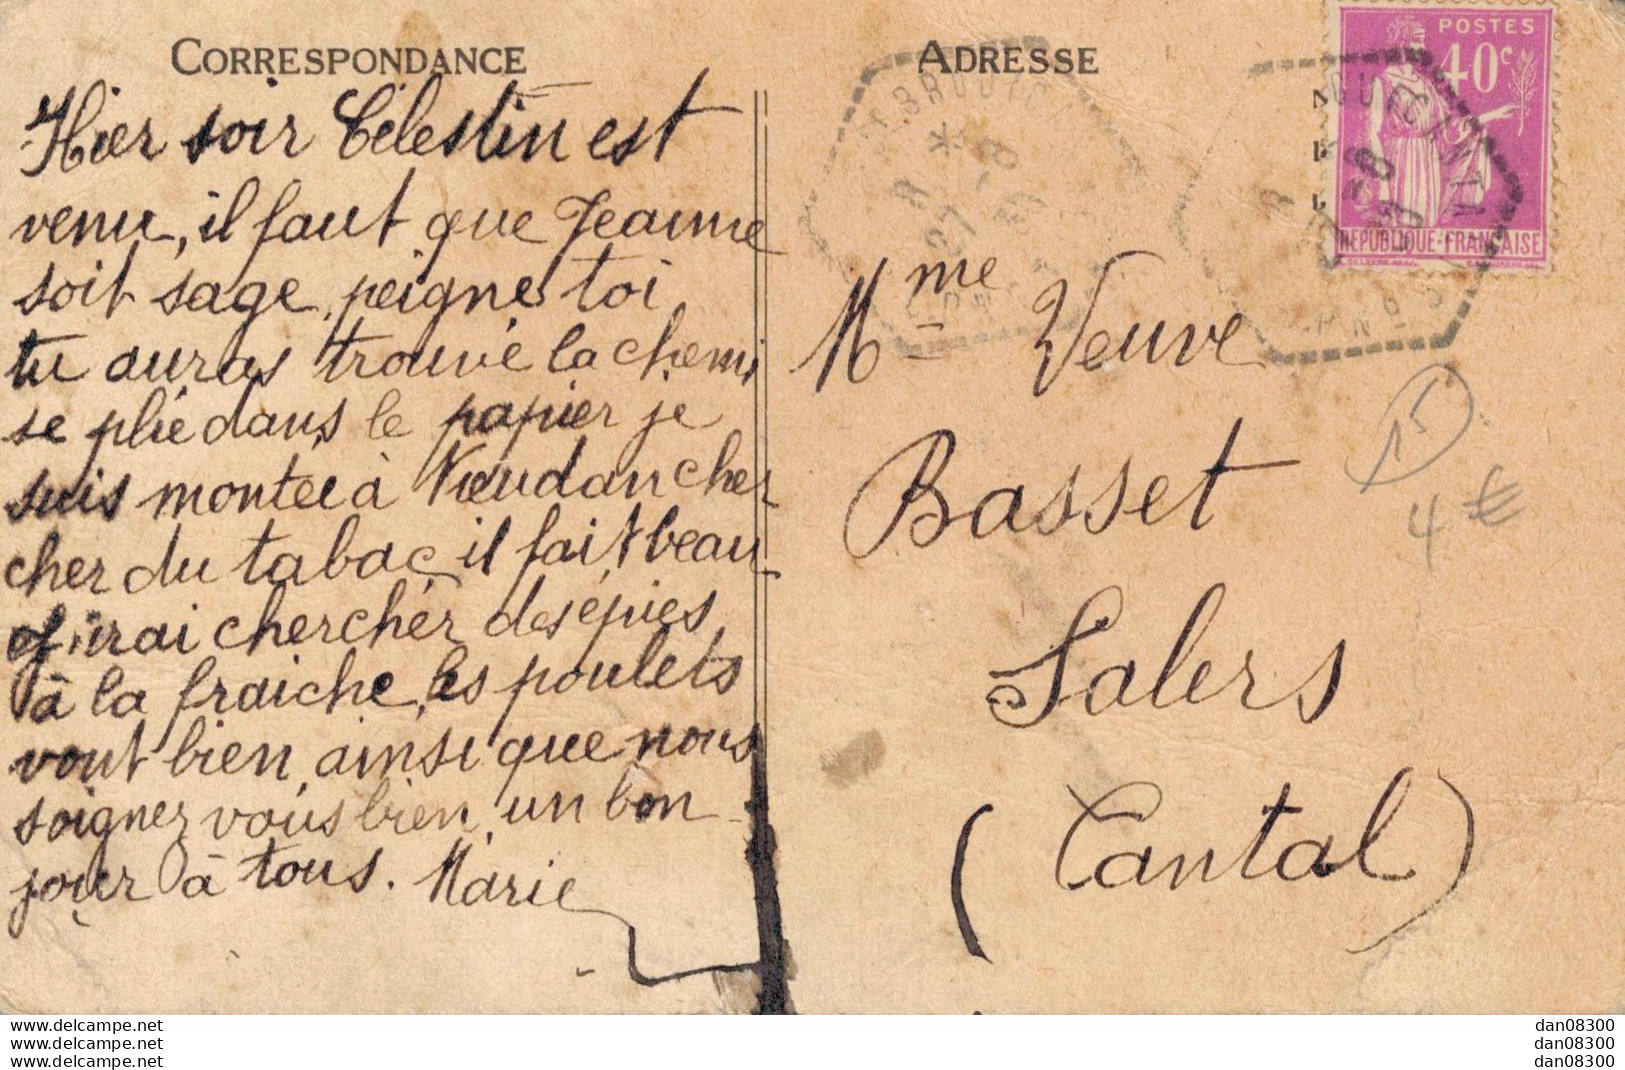 CORRESPONDANCE
Hier soir Célestin est
venu, il faut que Jeanne
soit sage, peigne toi
tu auras trouvé la chemi
se plié dans le papier je
suis montée à cher
cher du tabac, il fait beau
J'irai chercher des épies
à la fraiche, les poulets
vont bien, ainsi que nous
soignez vous bien, un bon
jour à tous. Marie
ADRESSE
POSTES
40c
REPUBLIQUE-FRANÇAISE
Mme Veuve
Basset
Salers
(Cantal)
15
4 €
www.delcampe.net
www.delcampe.net
www.delcampe.net
dan08300
dan08300
dan08300